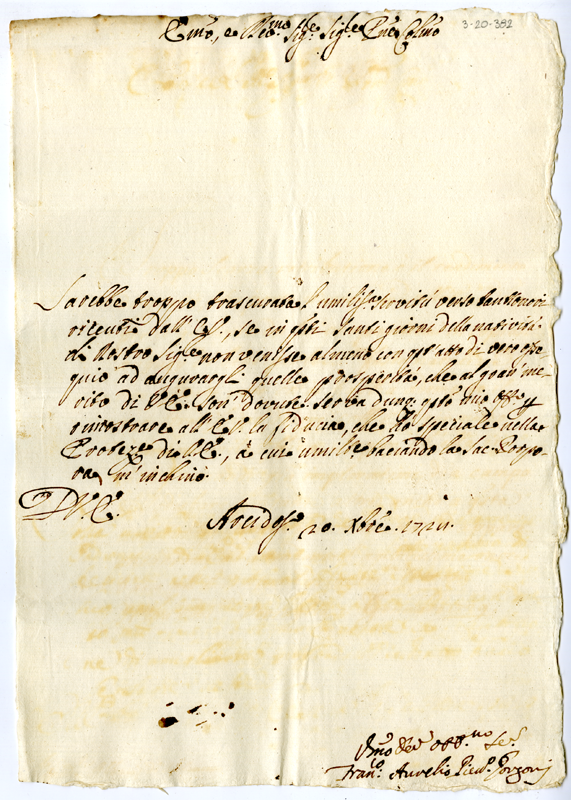 Emo, e Rmo Sigre Sigre Pne Colmo
3-20-382
Sarebbe troppo trascurata l'umiliss.a servitù verso tanti onori
ricevuti dall' E.V., se in q.sti Santi giorni della natività
di Nostro Sig.re non venisse almeno con q.sto atto di vero osse
quio ad augurargli quelle prosperità, che al gran me
rito di V.E. son dovute. Serva dunq. q.sto mio
rimostrare all' E.V. la fiducia, che hò speciale nella
Protez.e di V.E., à cui umilm.e baciando la Sac. Porpo
ra m' inchino.
D V.E.
Arcidos.o 20. Xbre. 1724.
Umo Devo Obb.mo Se.
Fran.co Aurelio